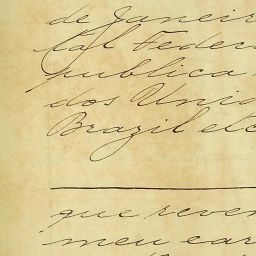 de Janeir
tal Feder
publica
dos Unid
Brazil etc
que rever
meu car